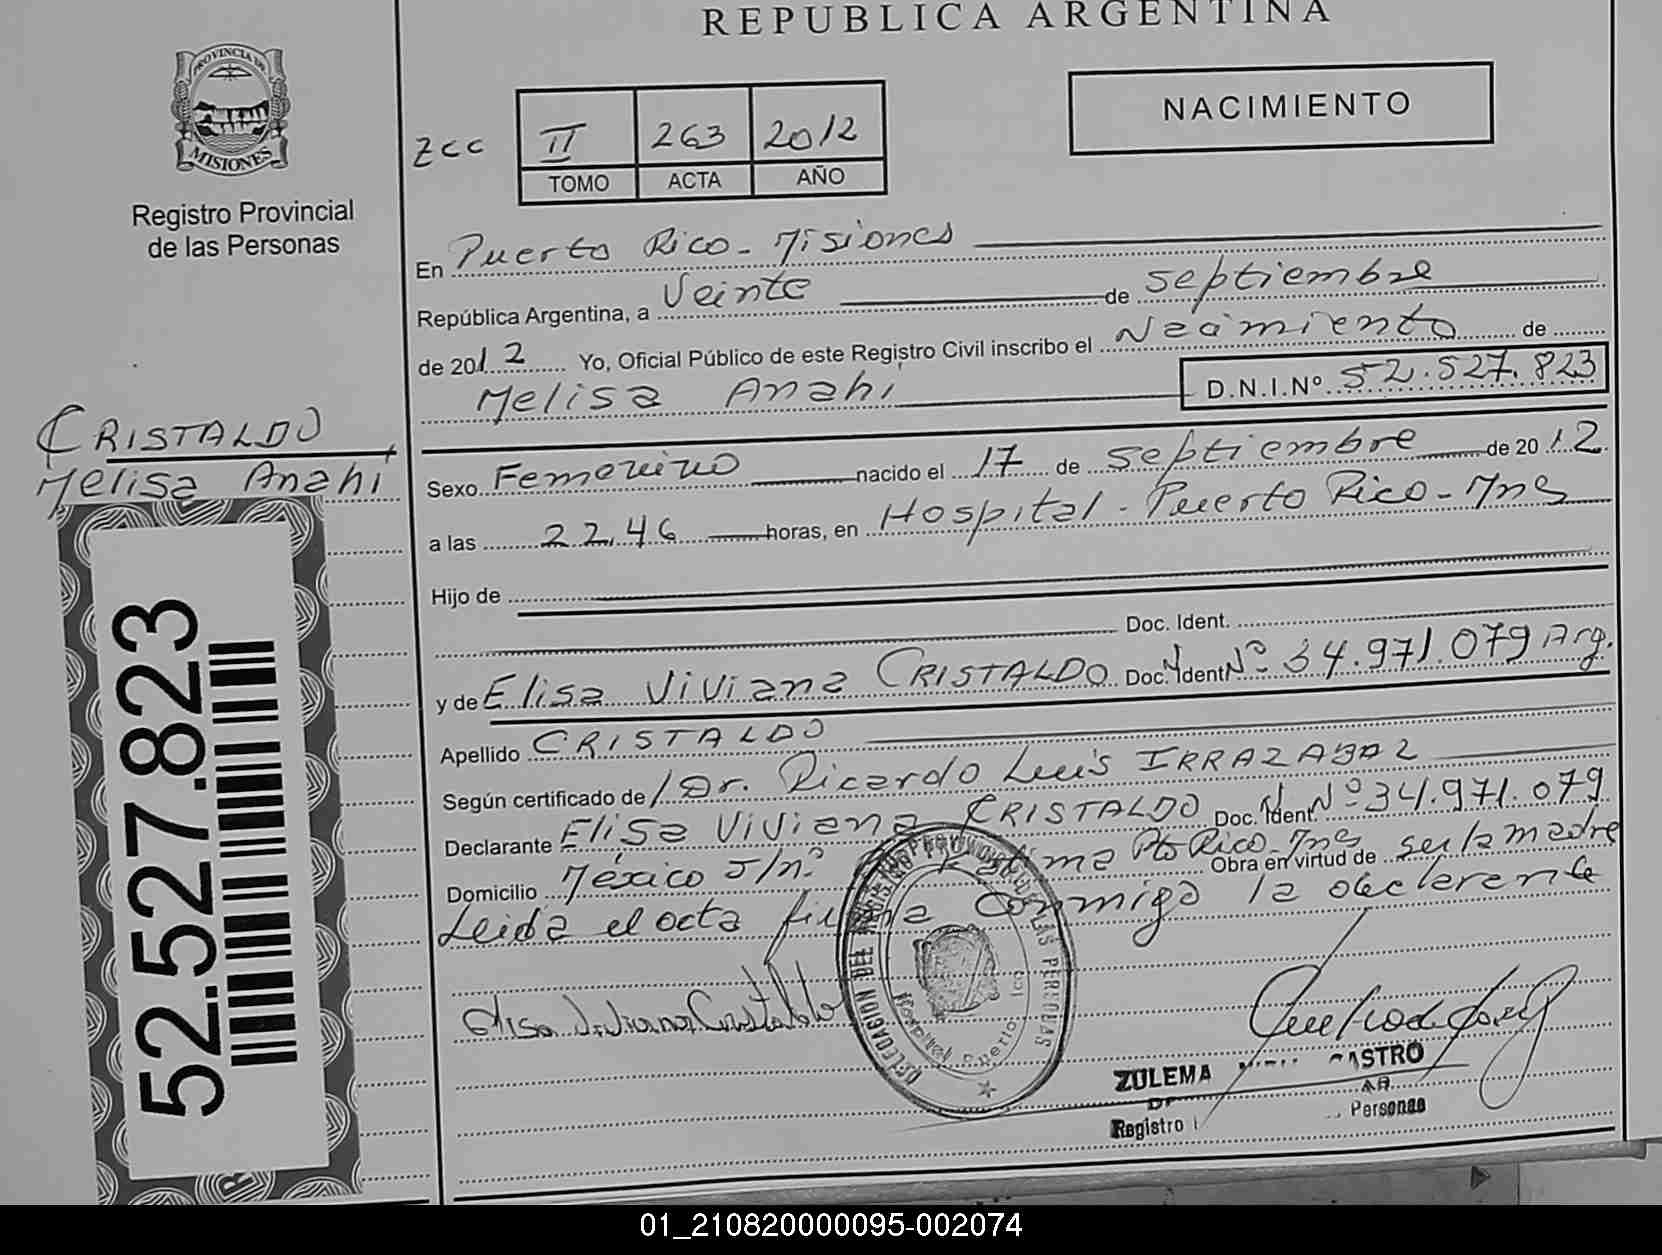 REPUBLICA ARGENTINA
PROVINCIA DE
MISIONES
Registro Provincial
de las Personas
NACIMIENTO
zcc II 263 2012
TOMO ACTA AÑO
En Puerto Rico - Misiones
República Argentina, a Veinte de septiembre
de 2012 Yo, Oficial Público de este Registro Civil inscribo el Nacimiento de
Melisa Anahí D.N.I.Nº 52.527.823
CRISTALDO
Melisa Anahí
Sexo Femenino nacido el 17 de septiembre de 2012
a las 22.46 horas, en Hospital - Puerto Rico - Mnes
Hijo de
Doc. Ident.
y de Elisa Viviana CRISTALDO Doc. Ident Nº 34.971.079 Arg.
Apellido CRISTALDO
Según certificado de Dr. Ricardo Luis IRRAZABAL
Declarante Elisa Viviana CRISTALDO Doc. Ident. Nº 34.971.079
Domicilio México S/nº Pto Rico - Mnes Obra en virtud de ser la madre
Leida el acta firma conmigo la declarante
Elisa Viviana Cristaldo
DELEGACION DEL LAS PERSONAS
ZULEMA CASTRO
Registro Personas
52.527.823
01_210820000095-002074